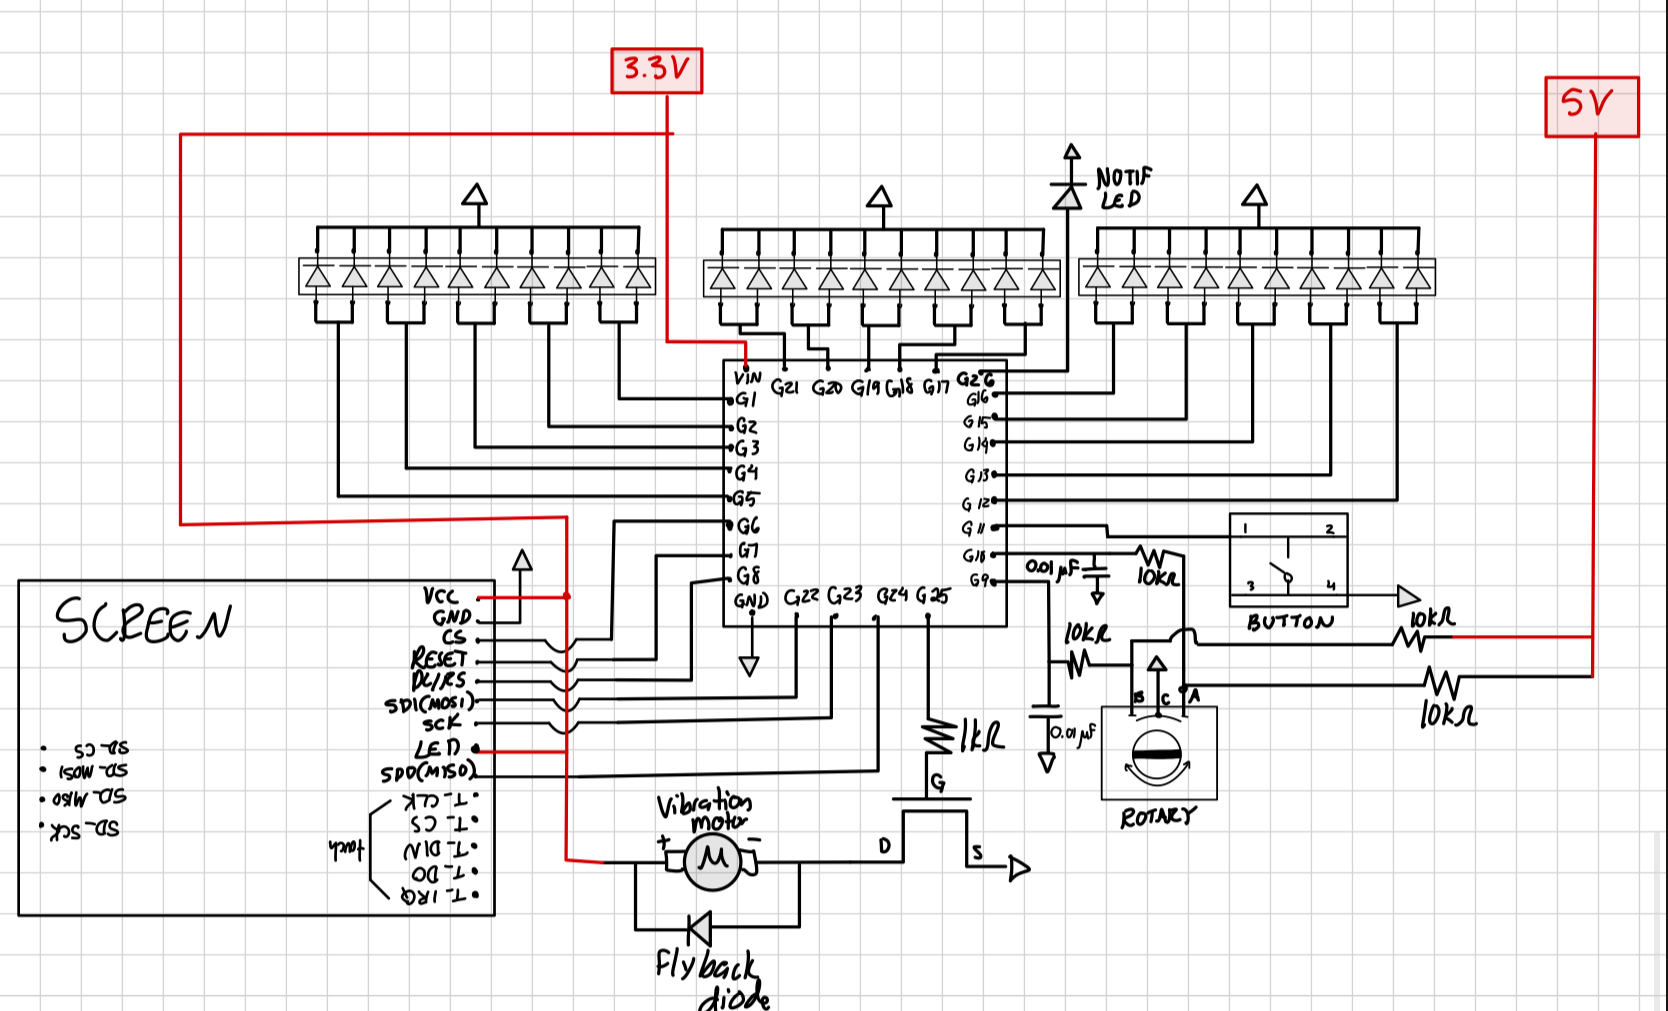 3.3V
5V
NOTIF
LED
VIN
G21
G20
G19
G18
G17
G26
G1
G2
G3
G4
G5
G6
G7
G8
GND
G22
G23
G24
G25
G16
G15
G14
G13
G12
G11
G10
G9
0.01 µF
10kΩ
1
2
3
4
BUTTON
10kΩ
10kΩ
10kΩ
B
C
A
0.01 µF
ROTARY
SCREEN
VCC
GND
CS
RESET
DC/RS
SDI(MOSI)
SCK
LED
SDO(MISO)
T-CLK
T-CS
T-DIN
T-DO
T-IRQ
touch
SD-CS
SD-MOSI
SD-MISO
SD-SCK
1kΩ
G
D
S
Vibration
motor
+
−
M
Flyback
diode